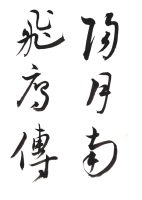 陽月南
飛雁傳